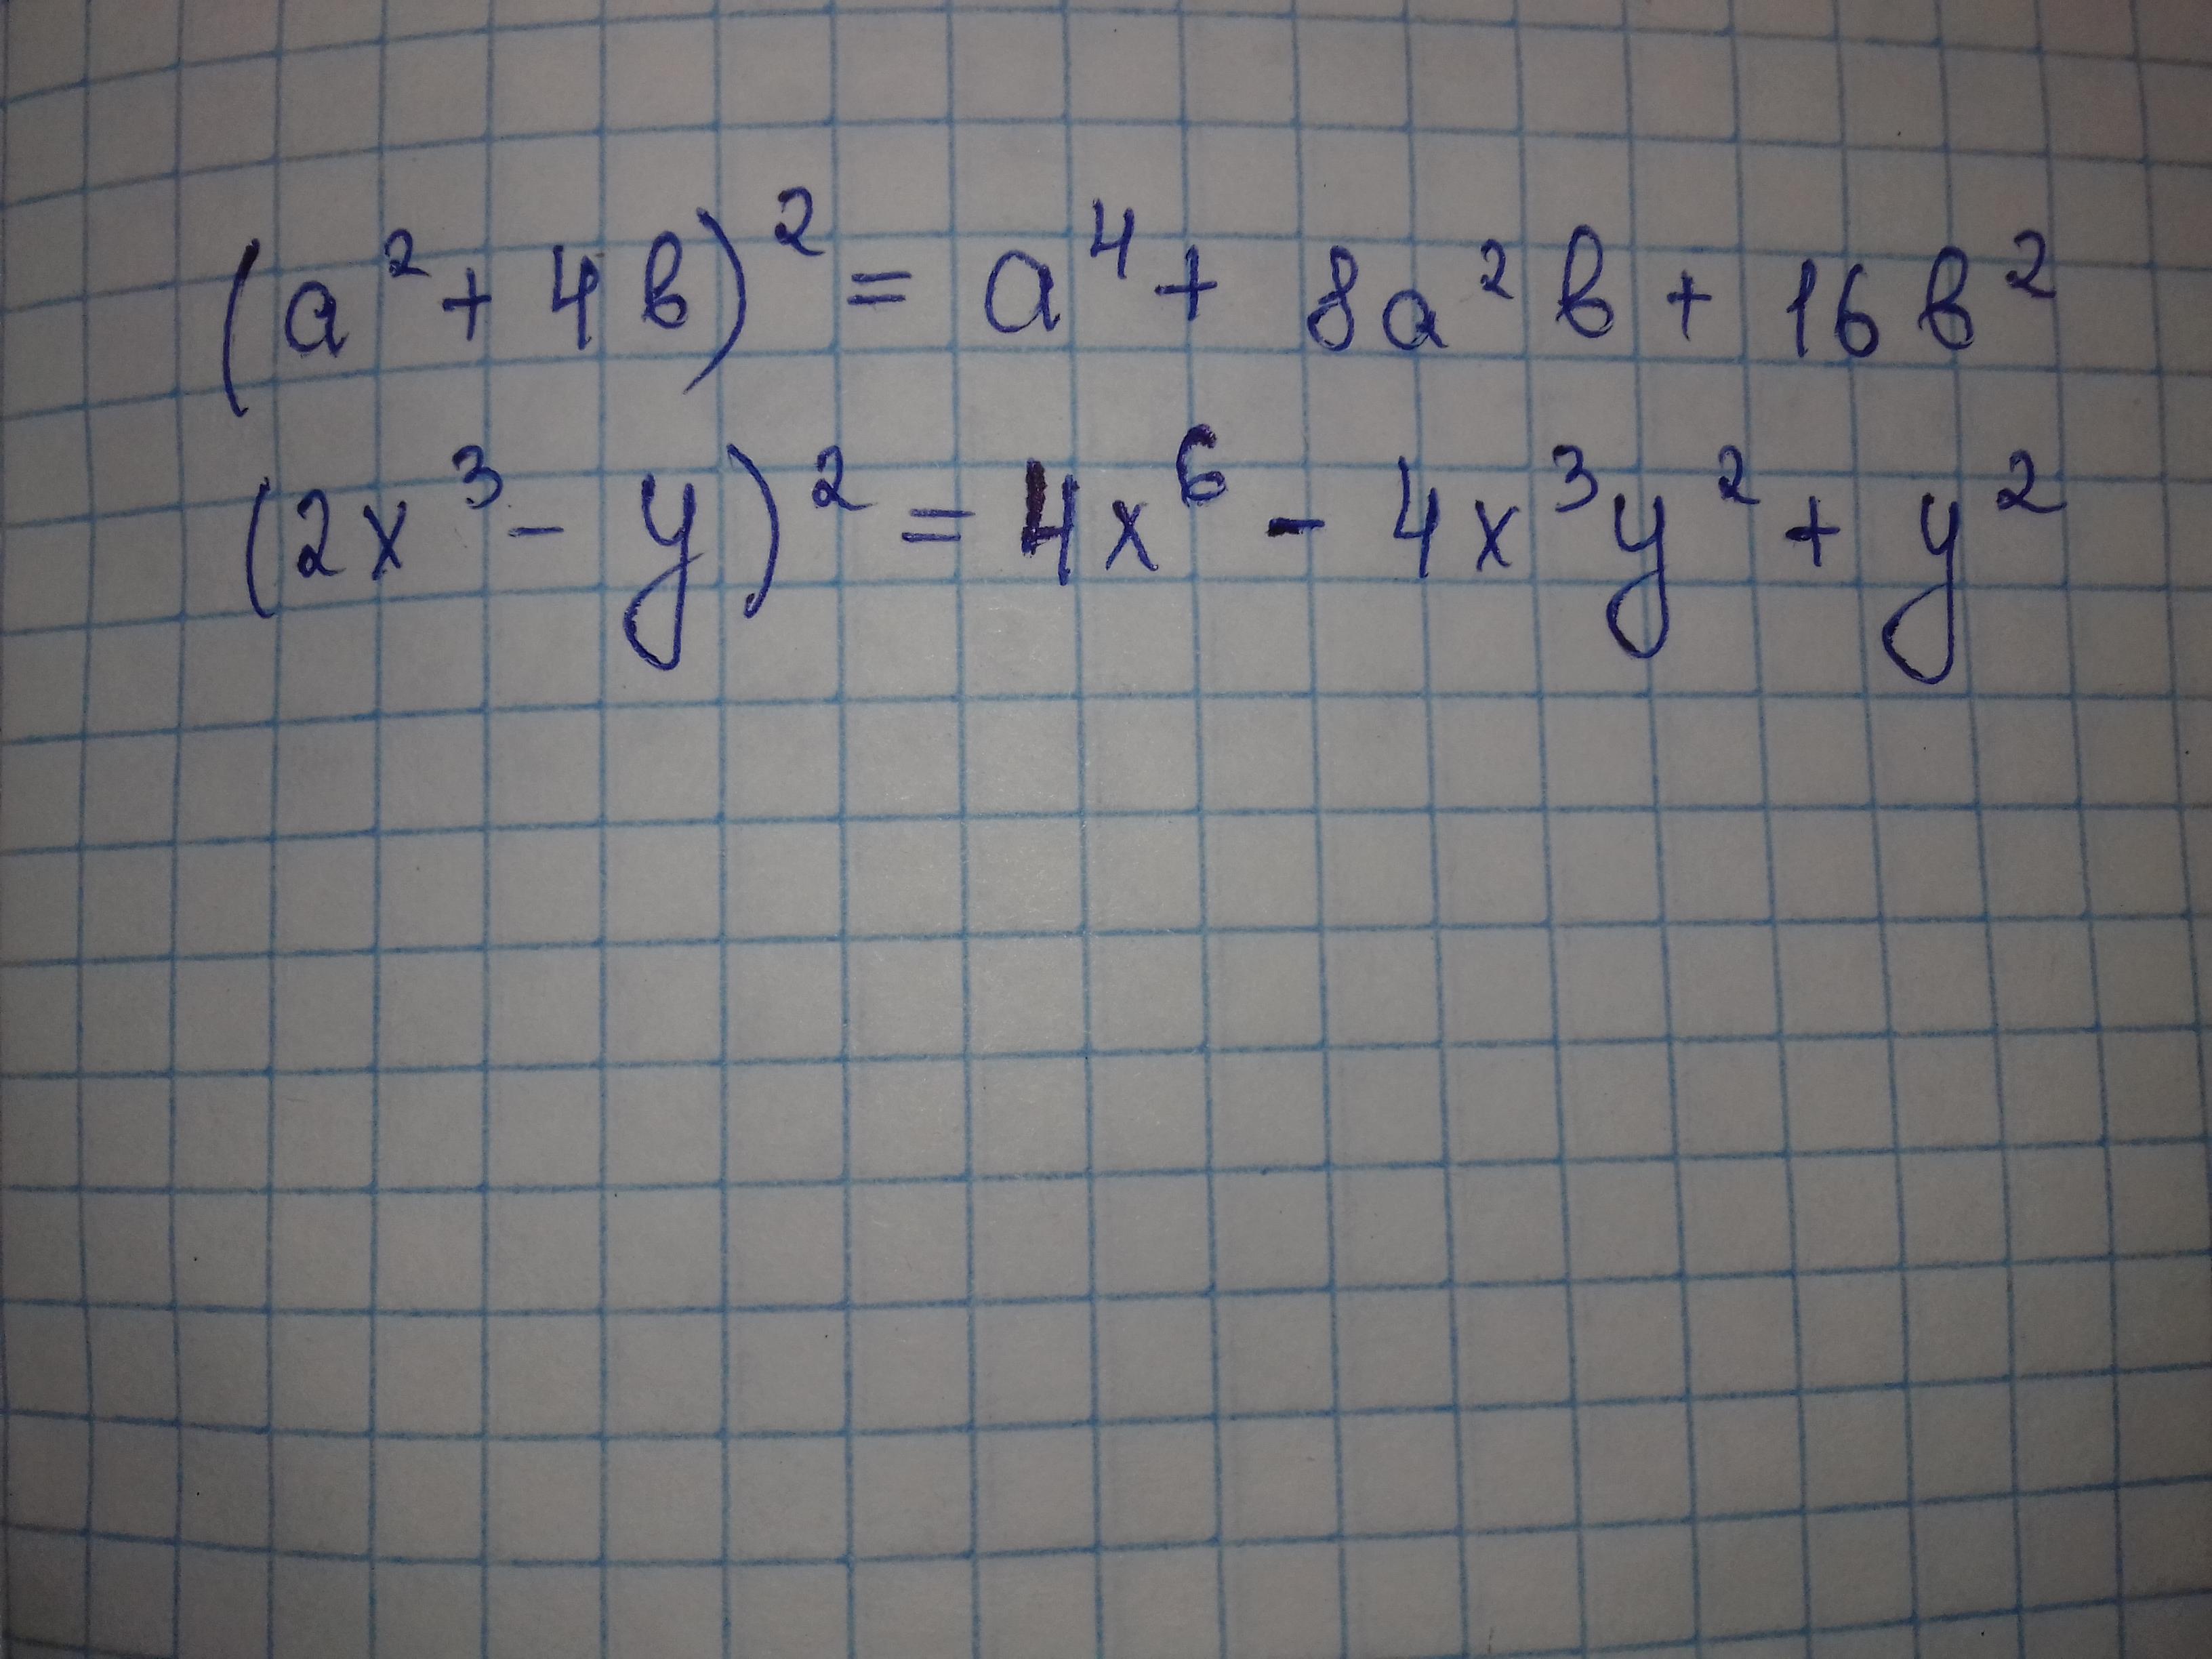 (a² + 4b)² = a⁴ + 8a²b + 16b²
(2x³ - y)² = 4x⁶ - 4x³y² + y²